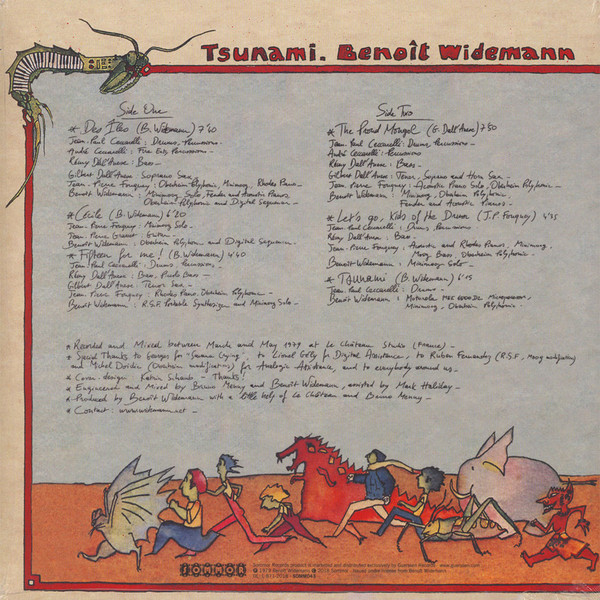 Tsunami. Benoît Widemann
Side One
* Deo Ileo (B. Widemann) 7'40
Jean-Paul Ceccarelli: Drums, Percussions -
André Ceccarelli: Percussions -
Rémy Dall'Anese: Bass -
Gilbert Dall'Anese: Soprano Sax -
Jean-Pierre Fouquey: Oberheim Polyphonic, Minimoog, Rhodes Piano -
Benoît Widemann: Minimoog Solo, Fender and Acoustic Pianos,
Oberheim Polyphonic and Digital Sequencer -
* Cécile (B. Widemann) 6'20
Jean-Pierre Fouquey: Minimoog Solo -
Jean-Pierre Guitar -
Benoît Widemann: Oberheim Polyphonic and Digital Sequencer -
* Fifteen for me! (B. Widemann) 4'40
Jean-Paul Ceccarelli: Drums, Percussions -
Rémy Dall'Anese: Bass, Piccolo Bass -
Gilbert Dall'Anese: Tenor Sax -
Jean-Pierre Fouquey: Rhodes Piano, Oberheim Polyphonic -
Benoît Widemann: R.S.F. Portable Synthesizer and Minimoog Solo -
Side Two
* The Proud Mongol (G. Dall'Anese) 7'50
Jean-Paul Ceccarelli: Drums, Percussions -
André Ceccarelli: Percussions -
Rémy Dall'Anese: Bass -
Gilbert Dall'Anese: Tenor, Soprano and Horn Sax -
Jean-Pierre Fouquey: Acoustic Piano Solo, Oberheim Polyphonic -
Benoît Widemann: Minimoog, Oberheim Polyphonic,
Fender and Acoustic Pianos -
* Let's go, Kids of the Drum (J.P. Fouquey) 4'35
Jean-Paul Ceccarelli: Drums, Percussions
Rémy Dall'Anese: Bass -
Jean-Pierre Fouquey: Acoustic and Rhodes Pianos, Minimoog,
Moog Bass, Oberheim Polyphonic -
Benoît Widemann: Minimoog Solo -
* Tsunami (B. Widemann) 6'15
Jean-Paul Ceccarelli: Drums -
Benoît Widemann: Motorola Microprocessor,
Minimoog, Oberheim Polyphonic
* Recorded and Mixed between March and May 1979 at Le Château Studio (France) -
* Special Thanks to Georges for "Swann Crying", to Lionel for Digital Assistance, to Ruben Fernandez (R.S.F., Moog modification)
and Michel (Oberheim modifications) for Analogic Assistance, and to everybody around us -
* Cover design: Katrin - Thanks!
* Engineered and Mixed by Bruno Menny and Benoît Widemann, assisted by Mark Haliday -
* Produced by Benoît Widemann with a little help of Le Château and Bruno Menny -
* Contact: www.widemann.net -
SOMMOR